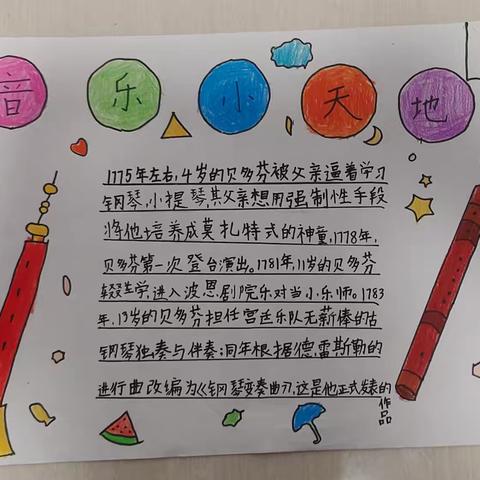 音乐小天地
1775年左右,4岁的贝多芬被父亲逼着学习
钢琴,小提琴,其父亲想用强制性手段
将他培养成莫扎特式的神童,1778年,
贝多芬第一次登台演出。1781年,11岁的贝多芬
辍学,进入波恩剧院乐对当小乐师。1783
年,13岁的贝多芬担任宫廷乐队无薪俸的古
钢琴独奏与伴奏;同年根据德,雷斯勒的
进行曲改编为《钢琴变奏曲》,这是他正式发表的
作品